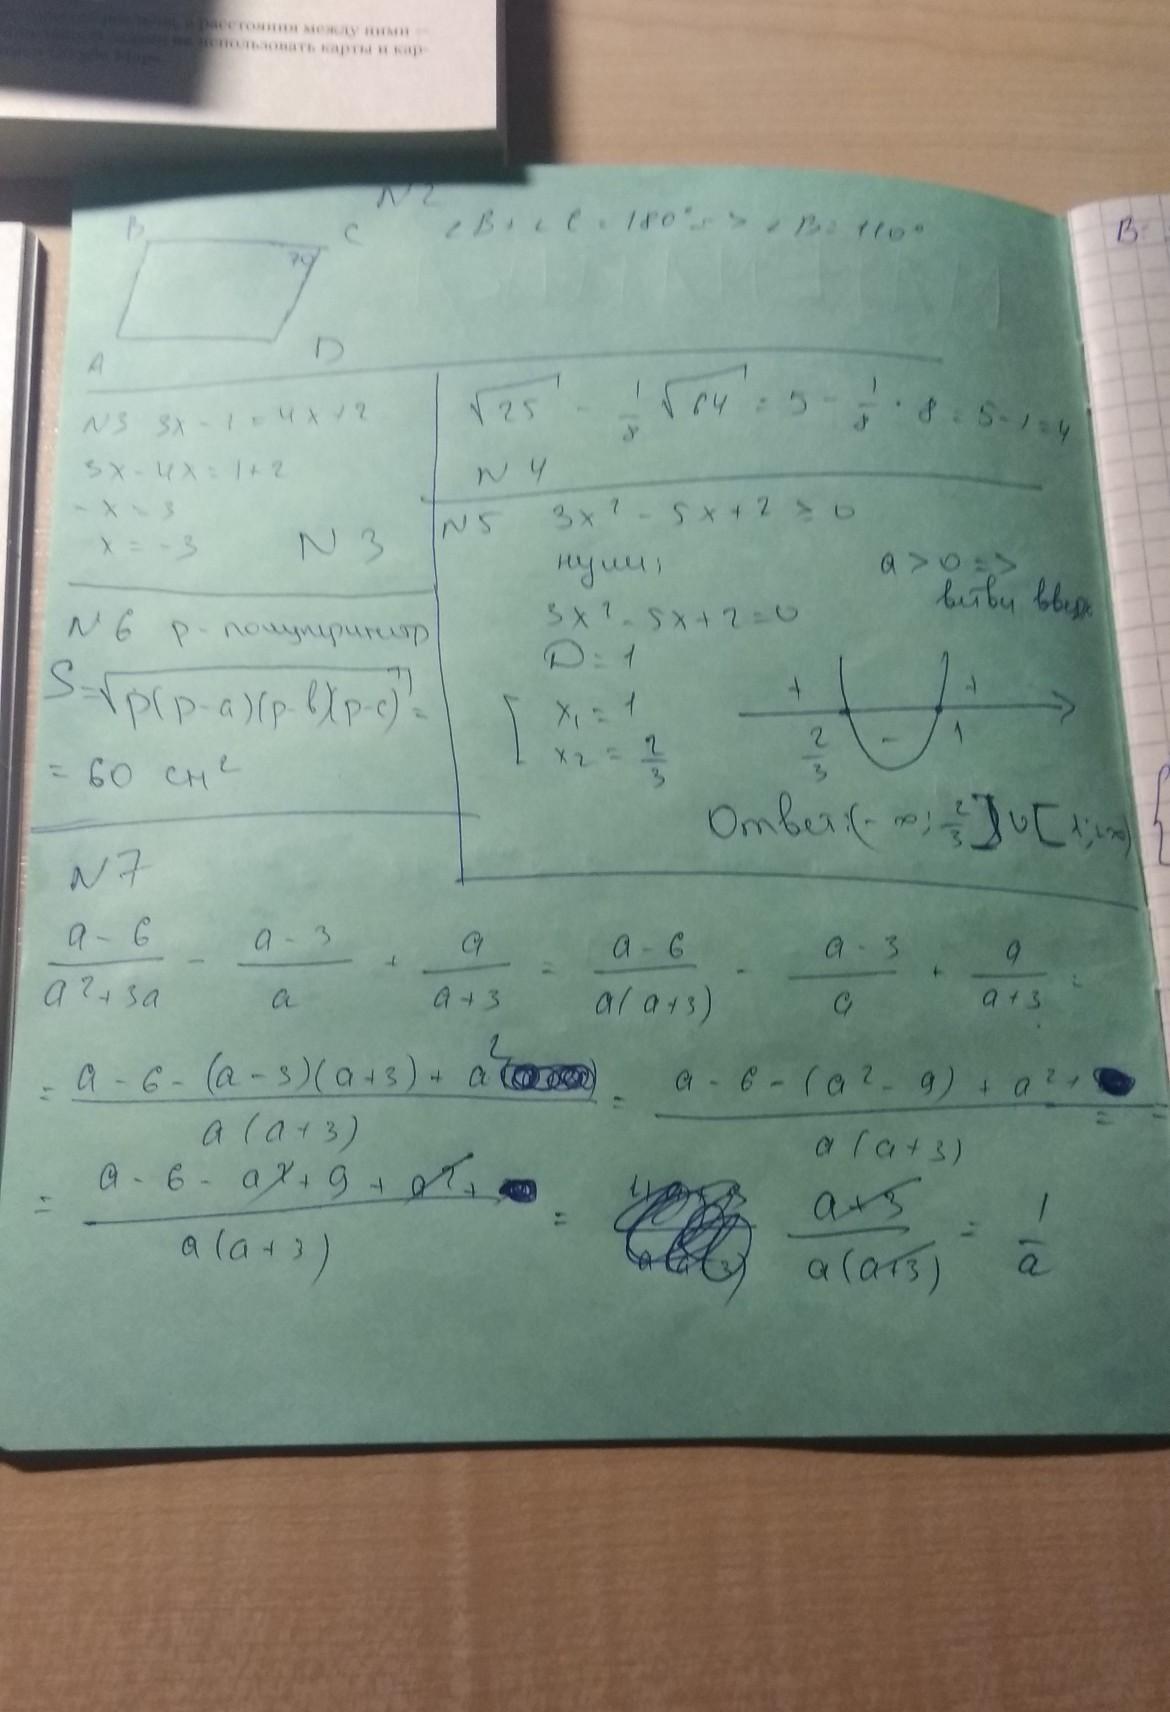 расстояния между ними —
использовать карты и кар-
N2
B C 70 A D
∠B + ∠C = 180° => ∠B = 110°
N3 3x - 1 = 4x + 2
3x - 4x = 1 + 2
- x = 3
x = -3 N3
√25 - 1/8 √64 = 5 - 1/8 · 8 = 5 - 1 = 4
N4
N5 3x² - 5x + 2 ≥ 0
нули;
a > 0 =>
ветви вверх
3x² - 5x + 2 = 0
D = 1
x₁ = 1
x₂ = 2/3
+ - +
2/3 1
Ответ: (-∞; 2/3] ∪ [1; +∞)
N6 p - полупериметр
S = √p(p-a)(p-b)(p-c) =
= 60 см²
N7
(a - 6)/(a² + 3a) - (a - 3)/a + a/(a + 3) = (a - 6)/(a(a + 3)) - (a - 3)/a + a/(a + 3) =
= (a - 6 - (a - 3)(a + 3) + a²)/(a(a + 3)) = (a - 6 - (a² - 9) + a² +)/(a(a + 3)) = =
= (a - 6 - a² + 9 + a² +)/(a(a + 3)) = (a + 3)/(a(a + 3)) = 1/a
В: